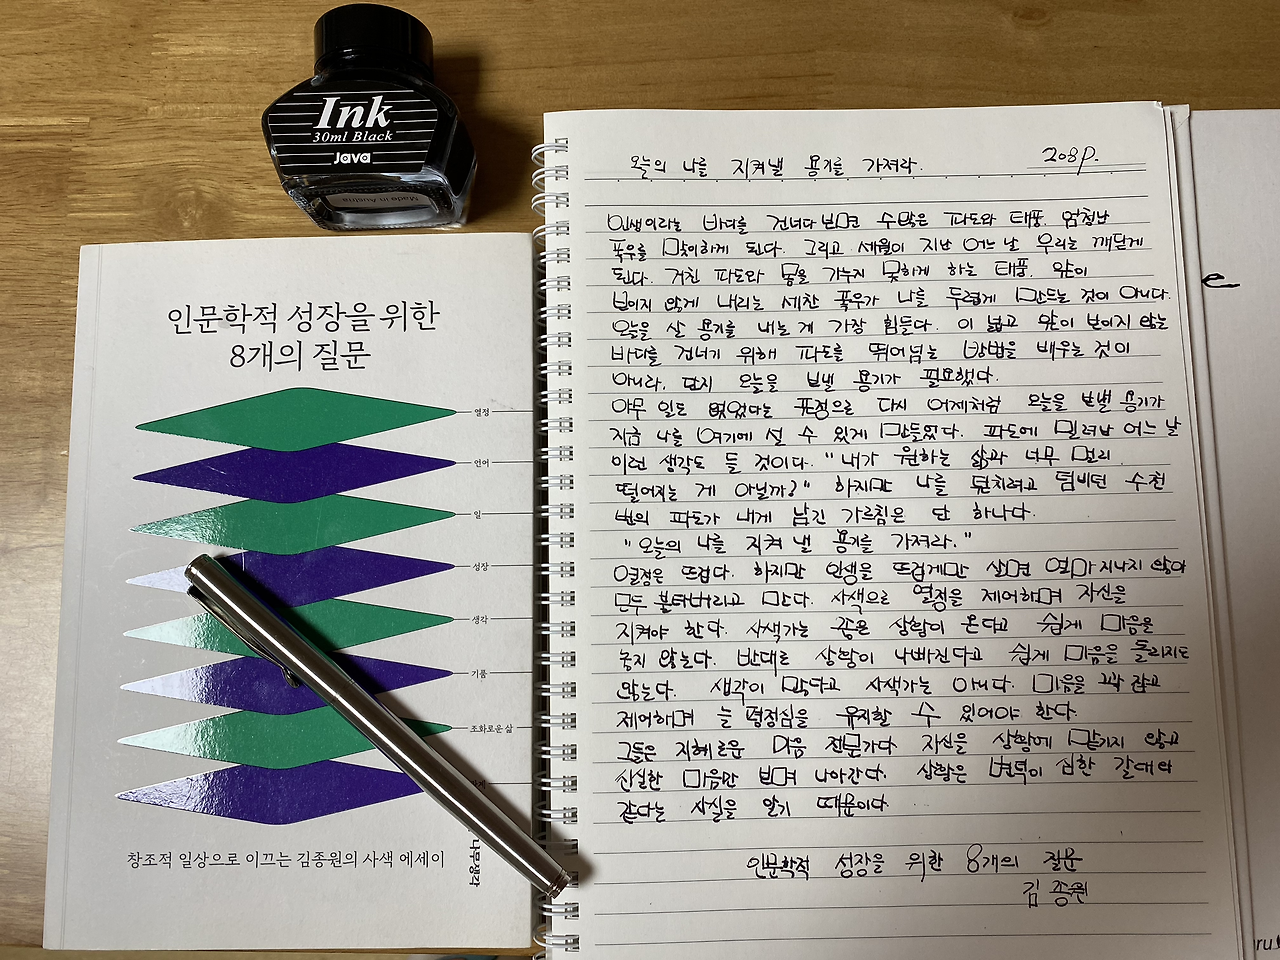 Ink
30ml Black
Java
Made in Austria
인문학적 성장을 위한
8개의 질문
열정
언어
일
성장
생각
기품
조화로운 삶
창조적 일상으로 이끄는 김종원의 사색 에세이
나무생각
오늘의 나를 지켜낼 용기를 가져라. 208p.
인생이라는 바다를 건너다 보면 수많은 파도와 태풍, 엄청난
폭우를 맞이하게 된다. 그리고 세월이 지난 어느 날 우리는 깨닫게
된다. 거친 파도와 몸을 가누지 못하게 하는 태풍, 앞이
보이지 않게 내리는 세찬 폭우가 나를 두렵게 만드는 것이 아니다.
오늘을 살 용기를 내는 게 가장 힘들다. 이 넓고 앞이 보이지 않는
바다를 건너기 위해 파도를 뛰어넘는 방법을 배우는 것이
아니라, 단지 오늘을 보낼 용기가 필요했다.
아무 일도 없었다는 표정으로 다시 어제처럼 오늘을 보낼 용기가
지금 나를 여기에 설 수 있게 만들었다. 파도에 밀려난 어느 날
이런 생각도 들 것이다. "내가 원하는 삶과 너무 멀리
떨어지는 게 아닐까?" 하지만 나를 덮치려고 덤비던 수천
번의 파도가 내게 남긴 가르침은 단 하나다.
"오늘의 나를 지켜 낼 용기를 가져라."
열정은 뜨겁다. 하지만 인생을 뜨겁게만 살면 얼마 지나지 않아
모두 불타버리고 만다. 사색으로 열정을 제어하며 자신을
지켜야 한다. 사색가는 좋은 상황이 온다고 쉽게 마음을
놓지 않는다. 반대로 상황이 나빠진다고 쉽게 마음을 돌리지도
않는다. 생각이 많다고 사색가는 아니다. 마음을 꽉 잡고
제어하며 늘 평정심을 유지할 수 있어야 한다.
그들은 지혜로운 마음 전문가다 자신을 상황에 맡기지 않고
신실한 마음만 보며 나아간다. 상황은 변덕이 심한 갈대와
같다는 사실을 알기 때문이다
인문학적 성장을 위한 8개의 질문
김종원
e